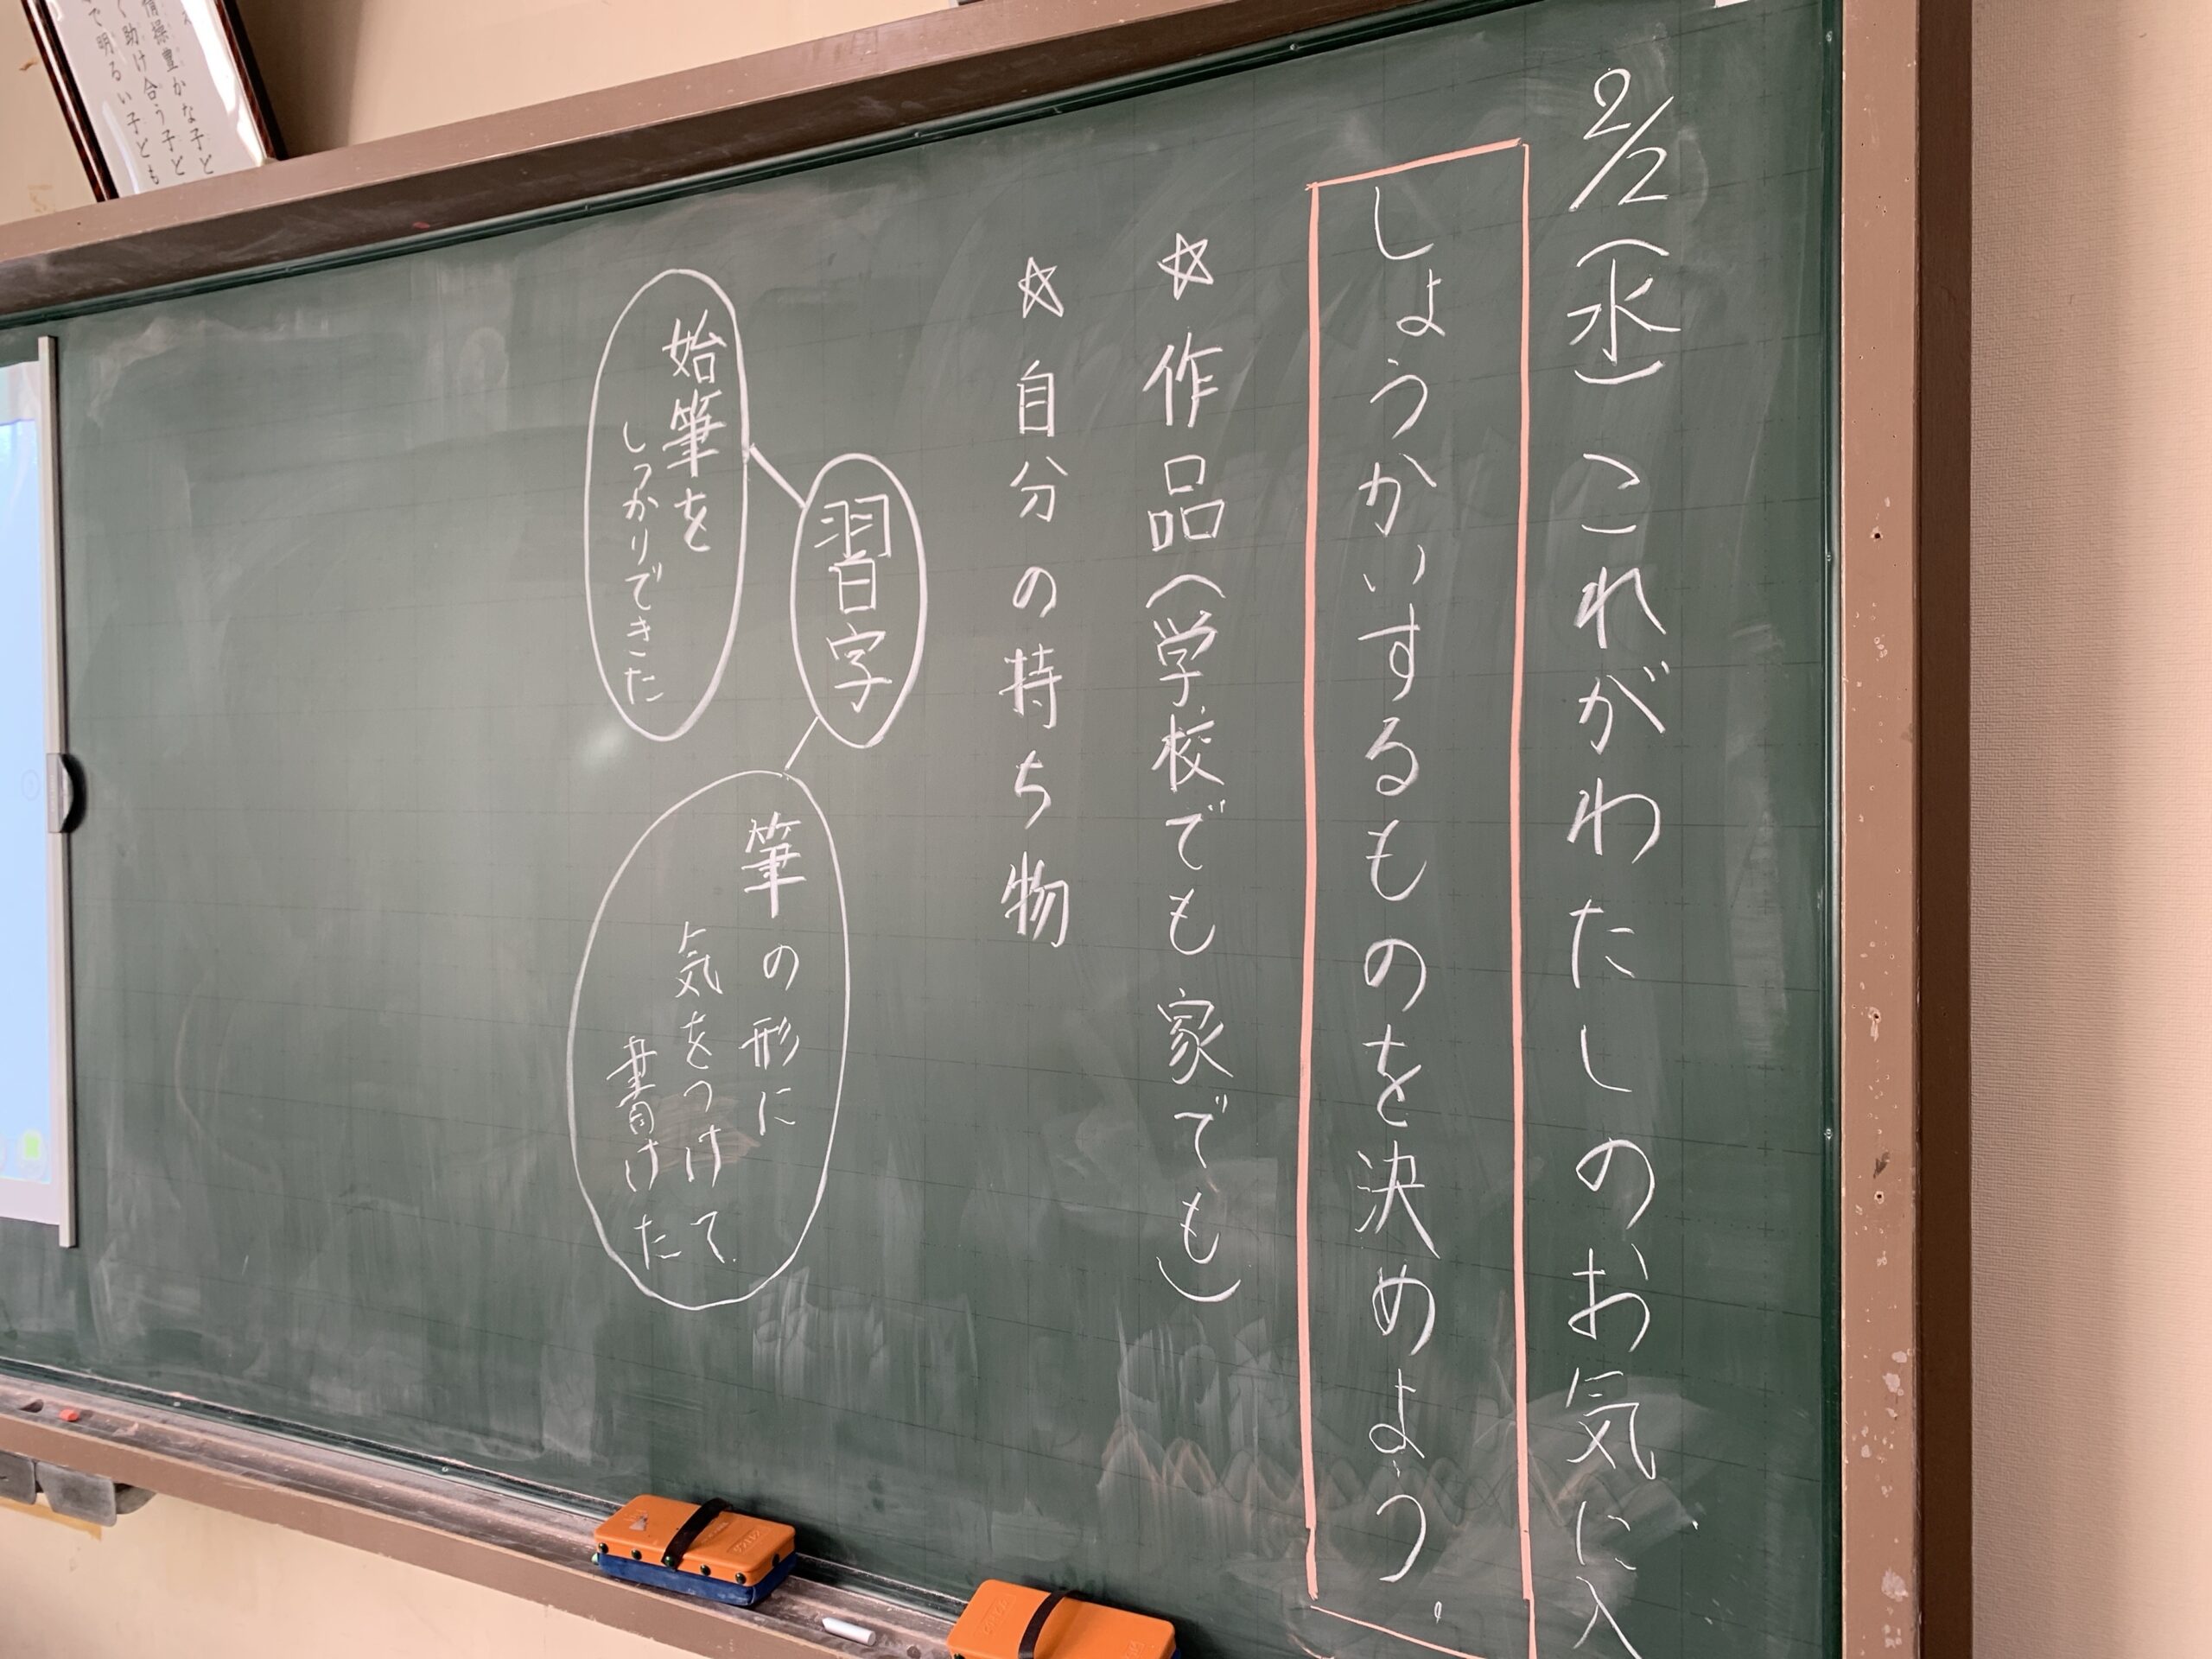 2/2(水)これがわたしのお気に入
しょうかいするものを決めよう。
☆作品(学校でも家でも)
☆自分の持ち物
習字
始筆を
しっかりできた
筆の形に
気をつけて
書けた
情操豊かな子ど
く助け合う子ど
で明るい子ども